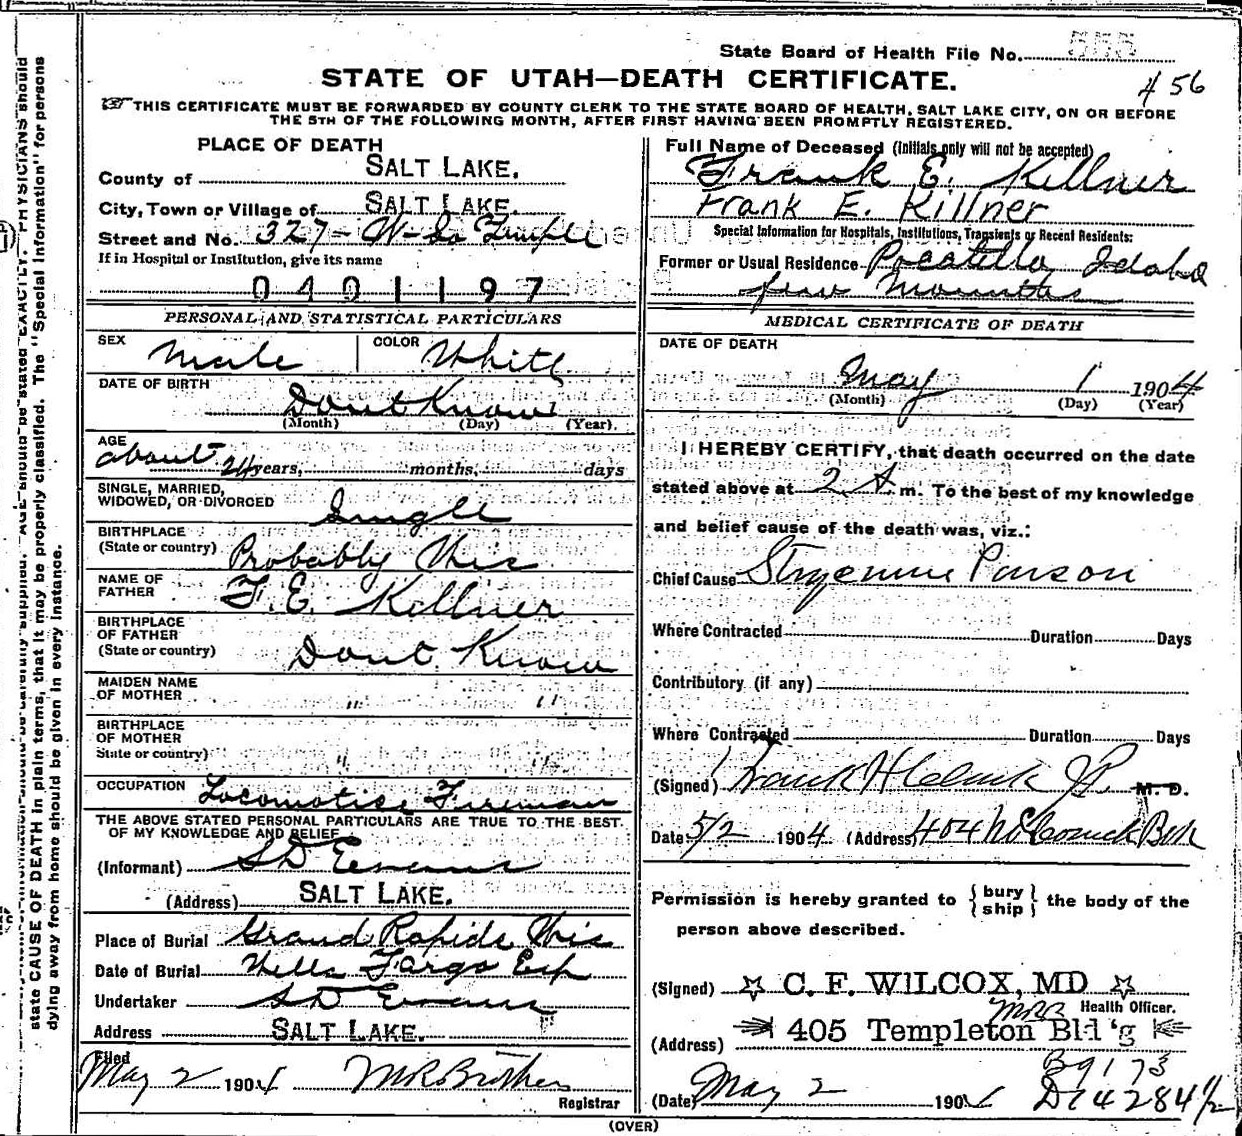 State Board of Health File No. 555
STATE OF UTAH—DEATH CERTIFICATE.
456
THIS CERTIFICATE MUST BE FORWARDED BY COUNTY CLERK TO THE STATE BOARD OF HEALTH, SALT LAKE CITY, ON OR BEFORE
THE 5TH OF THE FOLLOWING MONTH, AFTER FIRST HAVING BEEN PROMPTLY REGISTERED.
PLACE OF DEATH
County of SALT LAKE.
City, Town or Village of SALT LAKE.
Street and No. 327 - W - So Temple
If in Hospital or Institution, give its name
0401197
PERSONAL AND STATISTICAL PARTICULARS
SEX Male COLOR White
DATE OF BIRTH Dont Know
(Month) (Day) (Year).
AGE about 24 years, months, days
SINGLE, MARRIED,
WIDOWED, OR DIVORCED Single
BIRTHPLACE
(State or country) Probably Wis
NAME OF
FATHER F. E. Kellner
BIRTHPLACE
OF FATHER
(State or country) Dont Know
MAIDEN NAME
OF MOTHER " "
BIRTHPLACE
OF MOTHER
State or country) " "
OCCUPATION Locomotive Fireman
THE ABOVE STATED PERSONAL PARTICULARS ARE TRUE TO THE BEST
OF MY KNOWLEDGE AND BELIEF
(Informant) S D Evans
(Address) SALT LAKE.
Place of Burial Grand Rapids Wis
Date of Burial Wells Fargo Exp
Undertaker S D Evans
Address SALT LAKE.
Filed
May 2 1904 M R Brothers
Registrar
Full Name of Deceased (Initials only will not be accepted)
Frank E. Kellner
Frank E. Killner
Special Information for Hospitals, Institutions, Transients or Recent Residents:
Former or Usual Residence Pocatello Idaho
few Mounths
MEDICAL CERTIFICATE OF DEATH
DATE OF DEATH
May 1 1904
(Month) (Day) (Year)
I HEREBY CERTIFY, that death occurred on the date
stated above at 2 A m. To the best of my knowledge
and belief cause of the death was, viz.:
Chief Cause Strycnine Poison
Where Contracted Duration Days
Contributory (if any)
Where Contracted Duration Days
(Signed) Frank H Clark J P M. D.
Date 5/2 1904 (Address) 404 McCornick Blk
Permission is hereby granted to { bury
ship } the body of the
person above described.
(Signed) C. F. WILCOX, MD
MRB Health Officer.
(Address) 405 Templeton Bld'g
B9173
(Date) May 2 1904 D14284 1/2
(OVER)
PHYSICIANS should
state CAUSE OF DEATH in plain terms, that it may be properly classified. The "Special Information" for persons
dying away from home should be given in every instance.